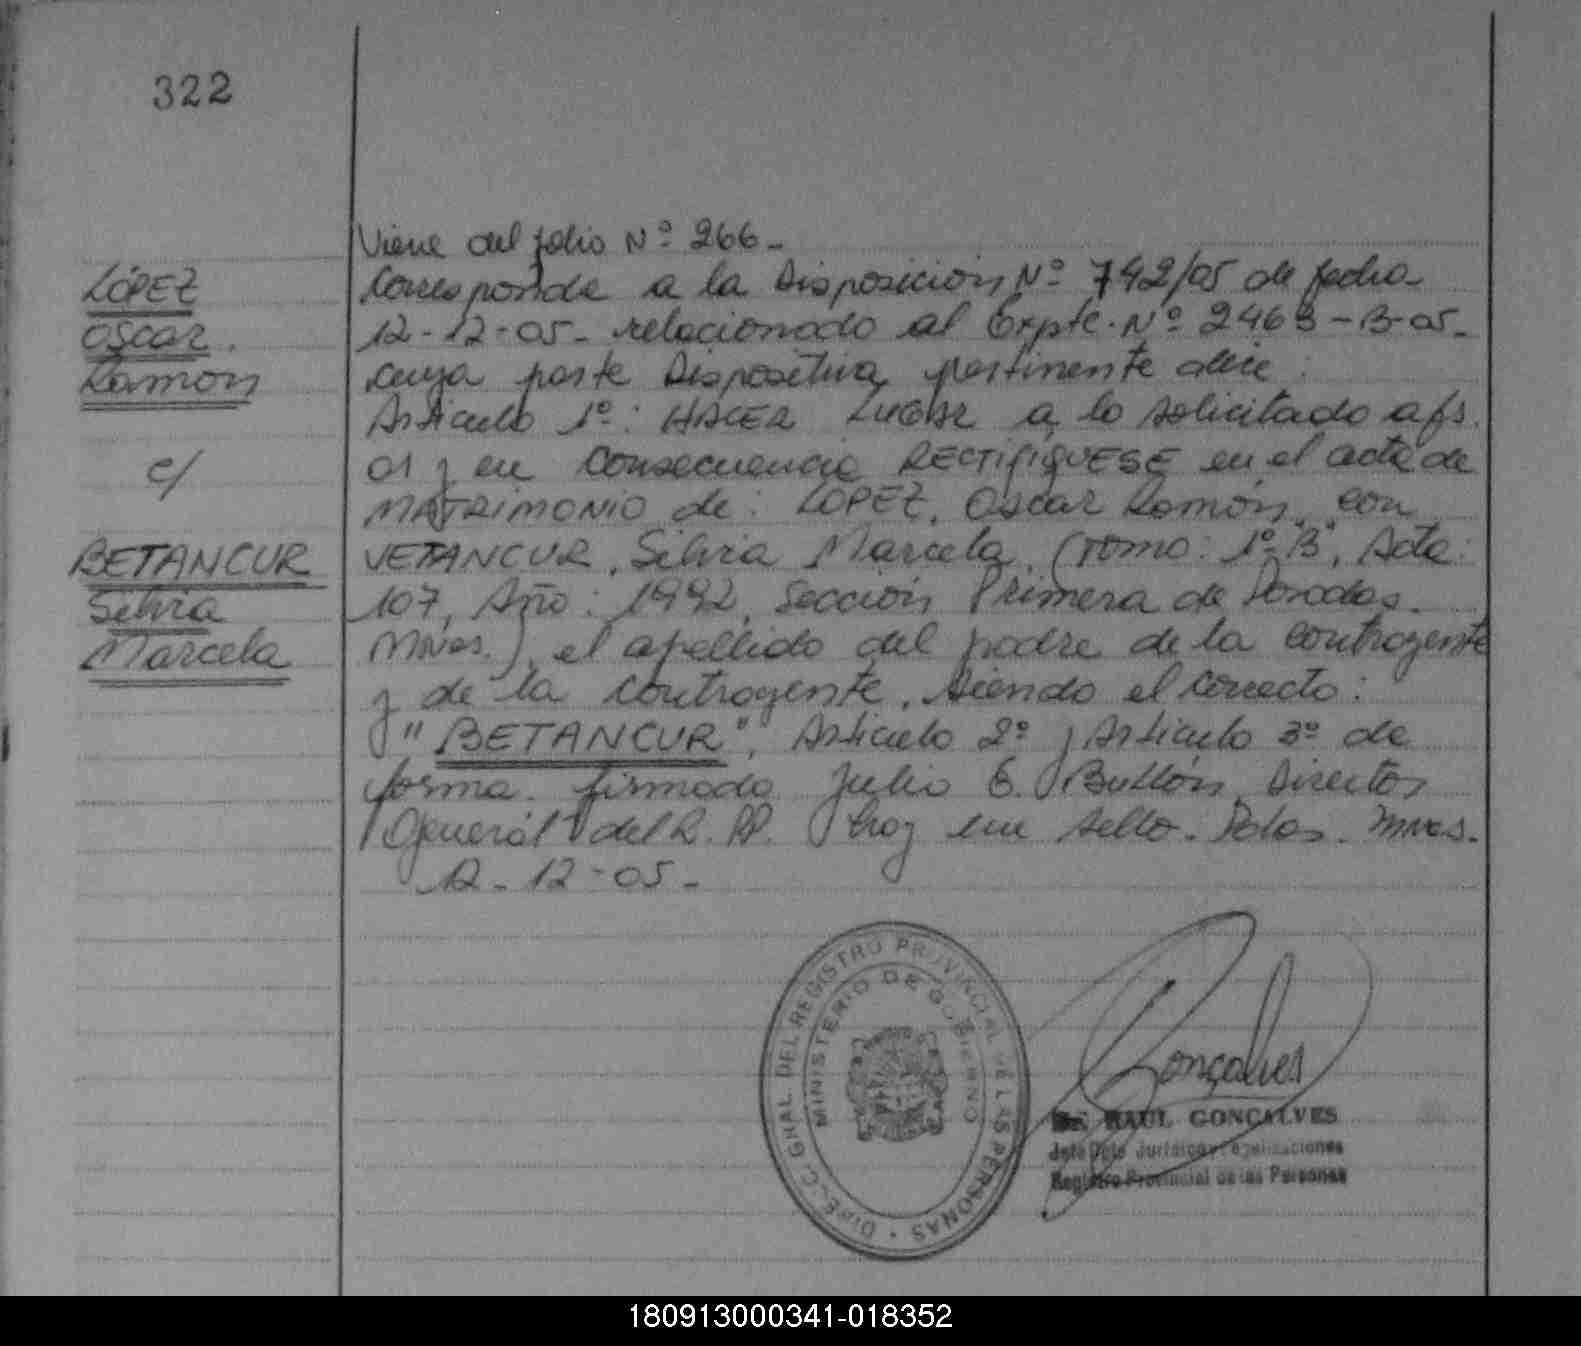 322
Viene del folio Nº 266-
LÓPEZ
Oscar.
Ramón
c/
BETANCUR
Silvia
Marcela
Corresponde a la Disposición Nº 742/05 de fecha
12-12-05- relacionado al Expte. Nº 2463-B-05-
cuya parte Dispositiva pertinente dice:
Artículo 1º: HACER LUGAR a lo solicitado a fs.
01 y en Consecuencia RECTIFÍQUESE en el acta de
MATRIMONIO de: LÓPEZ, Oscar Ramón, con
VETANCUR, Silvia Marcela, (Tomo: 1º"B", Acta:
107, Año: 1992, Sección Primera de Posadas.
Mnes.), el apellido del padre de la contrayente
y de la contrayente, siendo el correcto:
"BETANCUR", Artículo 2º y Artículo 3º de
forma. firmado Julio E. Bullón Director
General del R.PP. hay un sello- Pdas. Mnes.
12-12-05-
DIREC. GRAL. DEL REGISTRO PROVINCIAL DE LAS PERSONAS
MINISTERIO DE GOBIERNO
Gonçalves
RAUL GONCALVES
Jefe Dpto Jurídico y
Registro Provincial de las Personas
180913000341-018352